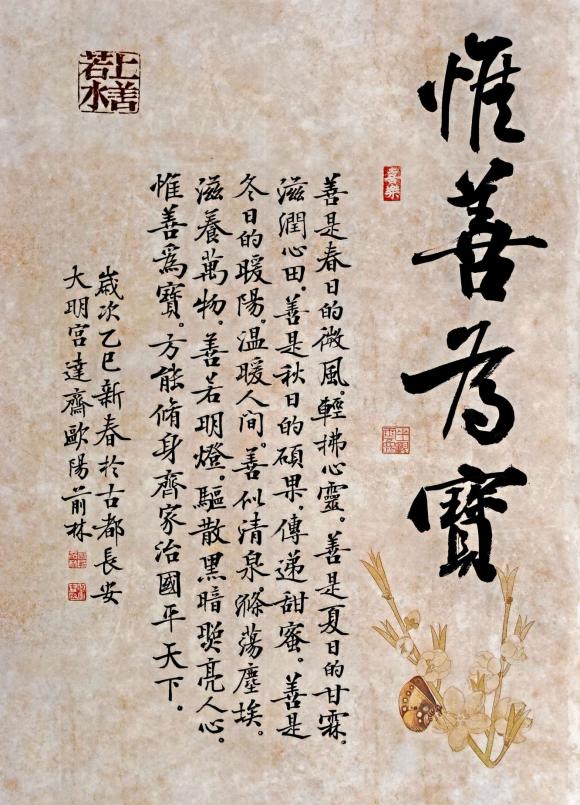 惟善為寶
喜樂
善是春日的微風。輕拂心靈。善是夏日的甘霖。
滋潤心田。善是秋日的碩果。傳遞甜蜜。善是
冬日的暖陽。温暖人间。善似清泉滌荡塵埃。
滋養萬物。善若明燈。驅散黑暗照亮人心。
惟善為寶。方能脩身齊家治國平天下。
歲次乙巳新春於古都長安
大明宫達齋歐陽前林
上善若水